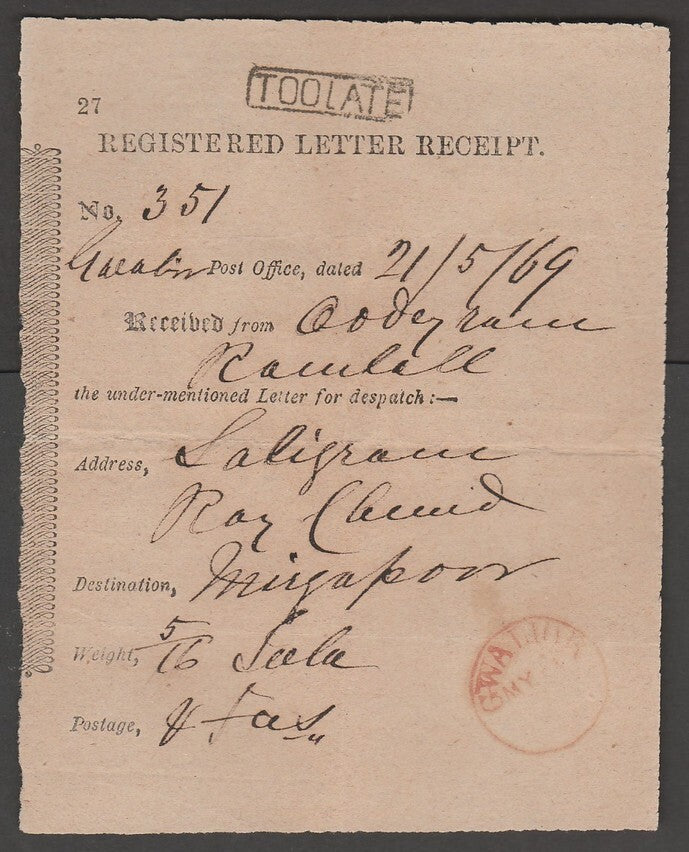 TOO LATE
27
REGISTERED LETTER RECEIPT.
No. 351
Gwalior Post Office, dated 21/5/69
Received from Oodeyram
Ramlall
the under-mentioned Letter for despatch:—
Address, Saligram
Ray Chund
Destination, Mirzapoor
Weight, 5/16 Tola
Postage, as
GWALIOR
MY